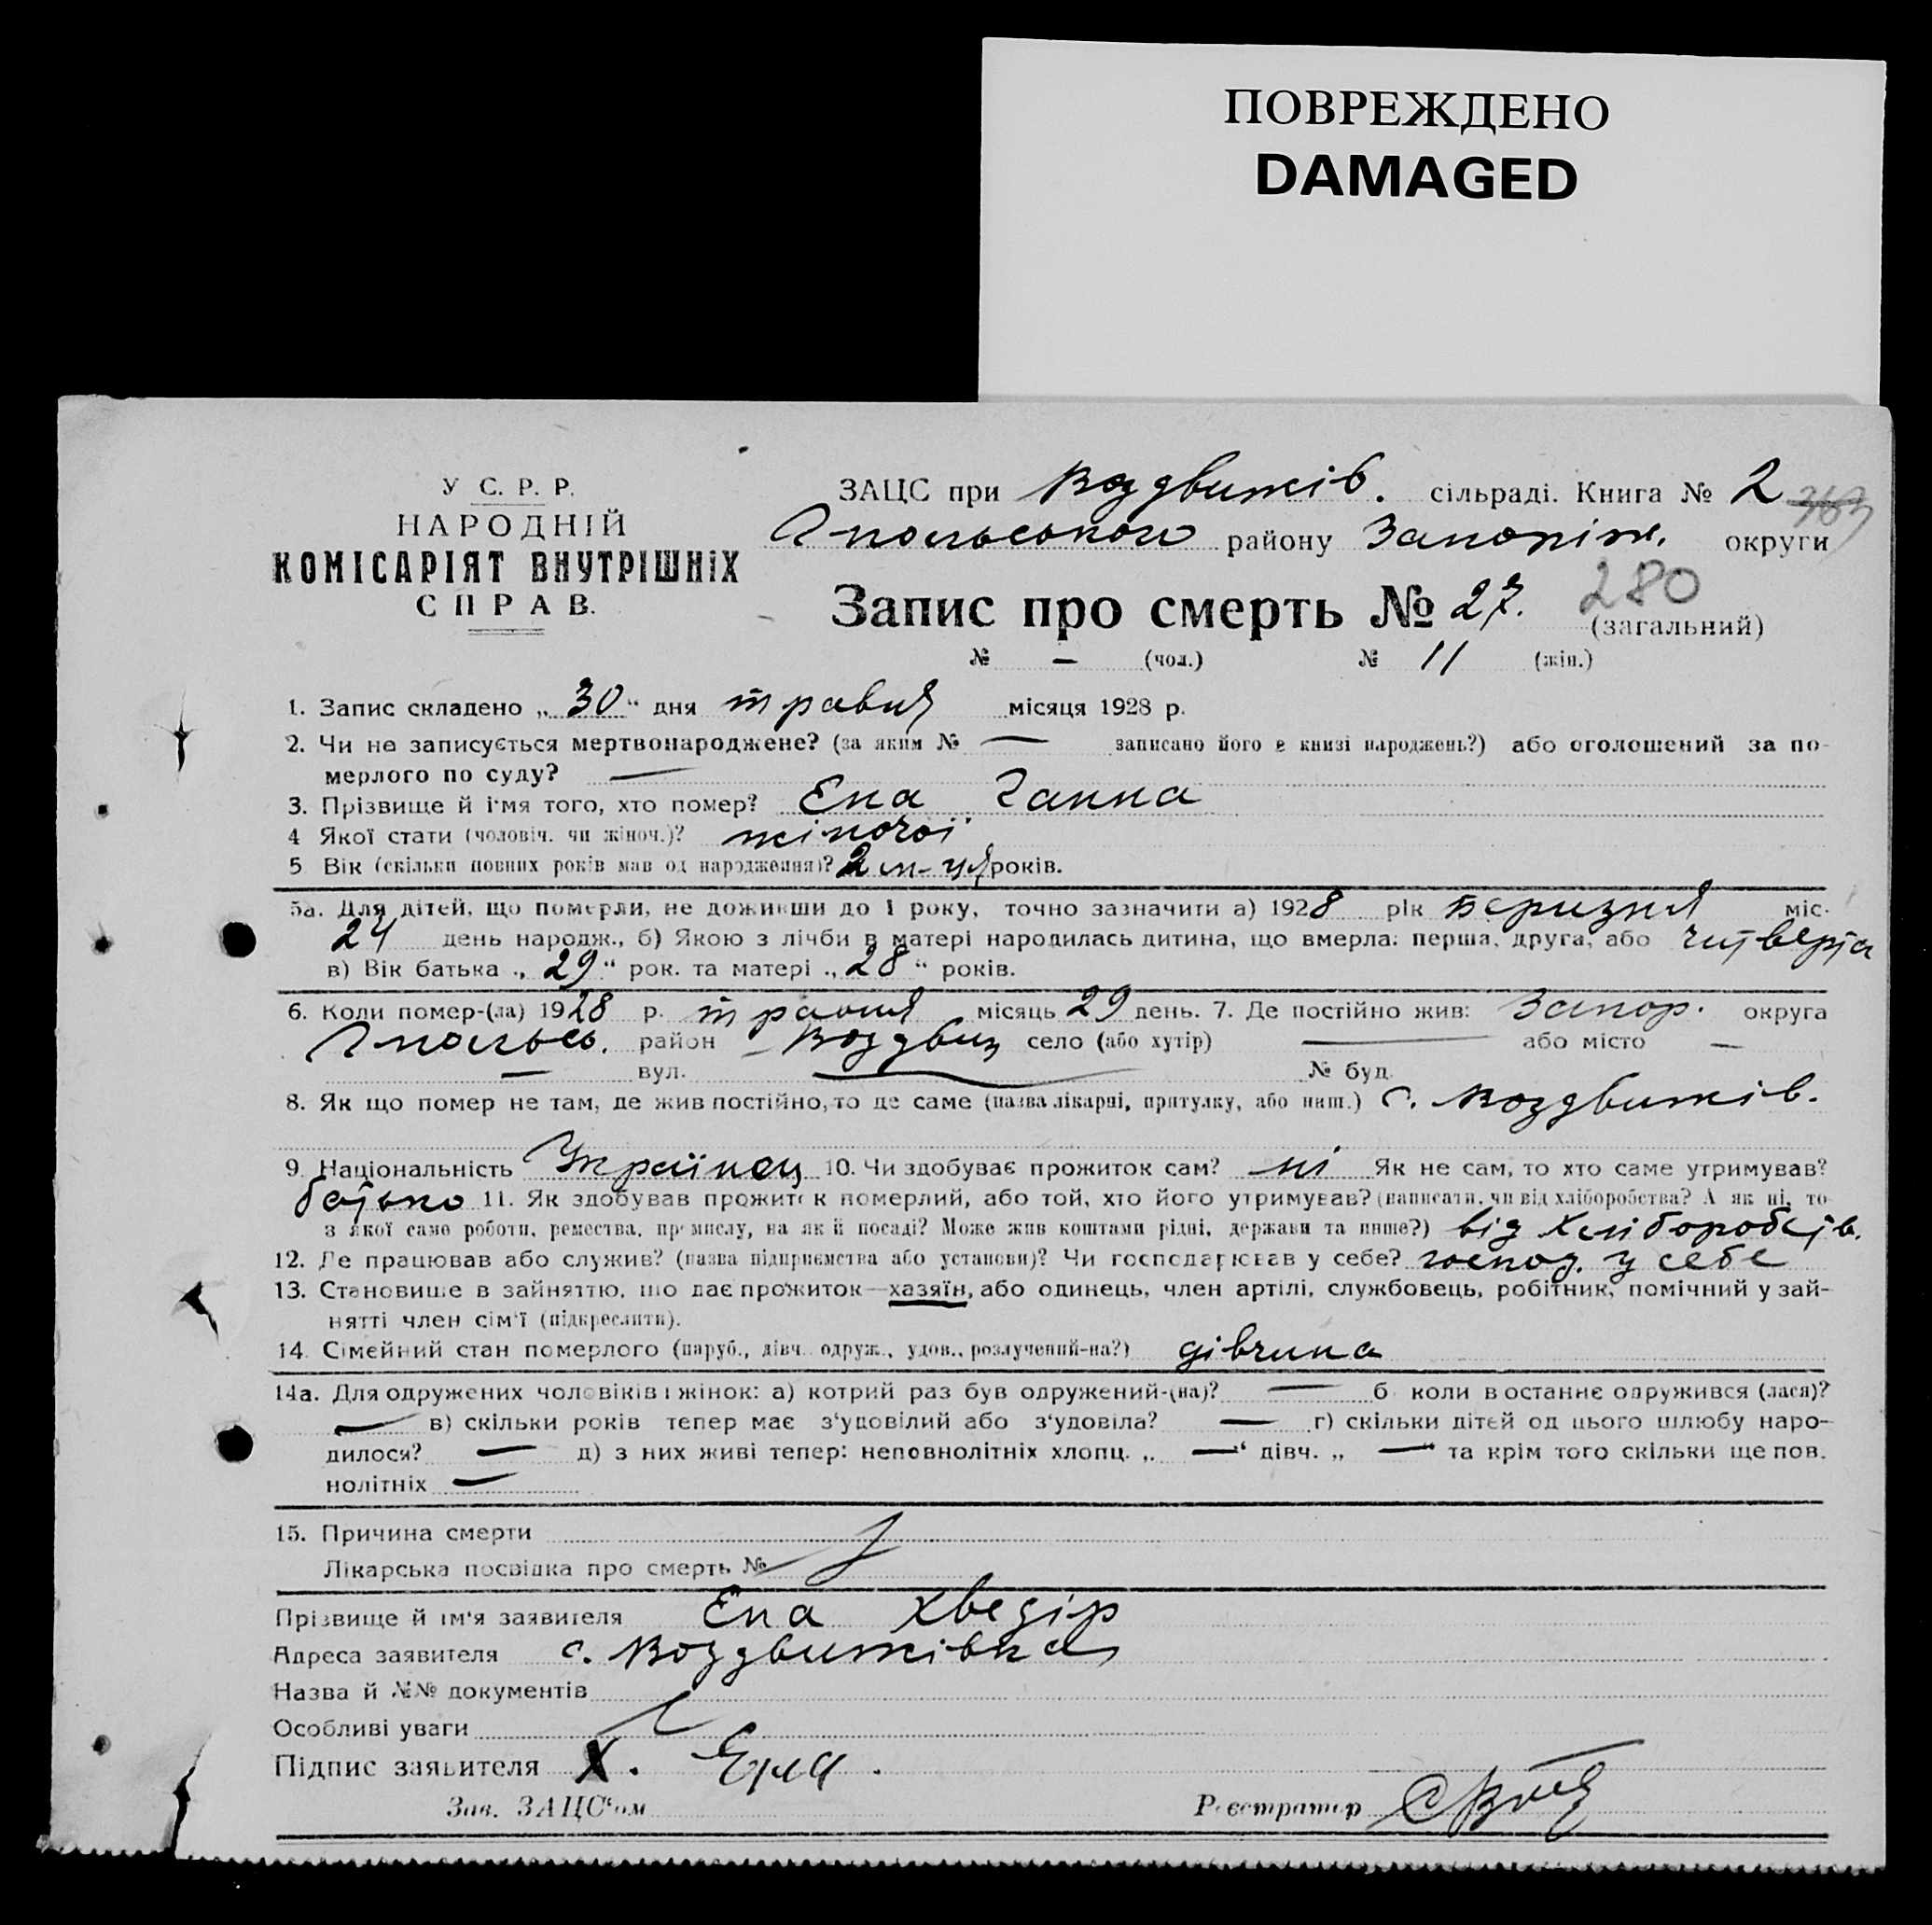 ПОВРЕЖДЕНО
DAMAGED
У С. Р. Р.
НАРОДНІЙ
КОМІСАРІЯТ ВНУТРІШНІХ
СПРАВ.
ЗАЦС при Воздвижів. сільраді. Книга № 2
району Запоріж. округи
Запис про смерть № 27. 280
(загальний)
№ — (чол.) № 11 (жін.)
1. Запис складено „ 30 “ дня травня місяця 1928 р.
2. Чи не записується мертвонароджене? (за яким № — записано його в книзі народжень?) або оголошений за по-
мерлого по суду? —
3. Прізвище й ім'я того, хто помер? Епа Ганна
4 Якої стати (чоловіч. чи жіноч.)? жіночої
5 Вік (скільки повних років мав од народження)? 2 м-ця років.
5а. Для дітей, що померли, не доживши до 1 року, точно зазначити а) 1928 рік березня міс.
24 день народж., б) Якою з лічби в матері народилась дитина, що вмерла: перша, друга, або читверта
в) Вік батька „ 29 “ рок. та матері „ 28 “ років.
6. Коли помер-(ла) 1928 р. травня місяць 29 день. 7. Де постійно жив: Запор. округа
район Воздвиж село (або хутір) — або місто —
— вул. — № буд.
8. Як що помер не там, де жив постійно, то де саме (назва лікарні, притулку, або инш.) с. Воздвижів.
9. Національність Українец 10. Чи здобуває прожиток сам? ні Як не сам, то хто саме утримував?
батько 11. Як здобував прожиток померлий, або той, хто його утримував? (написати, чи від хліборобства? А як ні, то
з якої саме роботи, ремества, промислу, на якій посаді? Може жив коштами рідні, держави та инше?) від хліборобств.
12. Де працював або служив? (назва підприємства або установи)? Чи господарював у себе? господ. у себе
13. Становище в зайняттю, що дає прожиток—хазяїн, або одинець, член артілі, службовець, робітник, помічний у зай-
нятті член сім'ї (підкреслити).
14. Сімейний стан померлого (паруб., дівч. одруж., удов., розлучений-на?) дівчина
14а. Для одружених чоловіків і жінок: а) котрий раз був одружений-(на)? — б коли в останнє одружився (лася)?
— в) скільки років тепер має з'удовілий або з'удовіла? — г) скільки дітей од цього шлюбу наро-
дилося? — д) з них живі тепер: неповнолітніх хлопц. „ — “ дівч. „ — “ та крім того скільки ще пов.
нолітніх —
15. Причина смерти
Лікарська посвідка про смерть №
Прізвище й ім'я заявителя Епа Хведір
Адреса заявителя с. Воздвижівка
Назва й №№ документів
Особливі уваги
Підпис заявителя Х. Епа.
Зав. ЗАЦС'ом Реєстратор